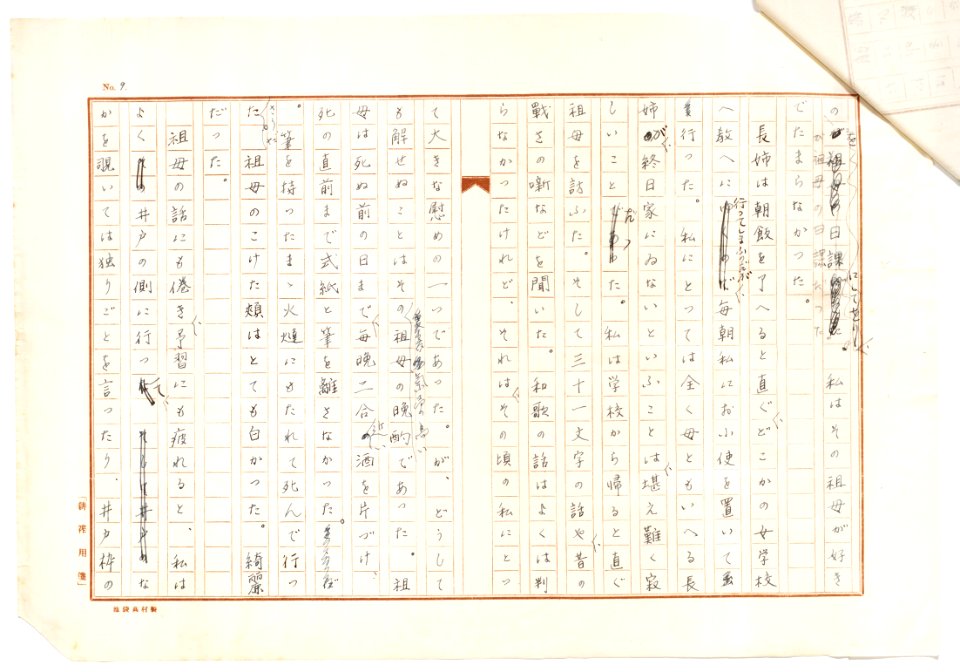 No. 9
の日課 私はその祖母が好き
でたまらなかった。
長姉は朝飯を了へると直ぐどこかの女学校
へ教へに行ってしまふので、毎朝私におふ使を置いて
行った。私にとっては全く母ともいへる長
姉が終日家にゐないといふことは堪え難く寂
しいことだった。私は学校から帰ると直ぐ
祖母を訪ふた。そして三十一文字の話や昔の
戰さの噺などを聞いた。和歌の話はよくは判
らなかったけれど、それはその頃の私にとっ
て大きな慰めの一つであった。が、どうして
も解せぬことはその祖母の晩酌であった。祖
母は死ぬ前の日まで毎晩二合近い酒を片づけ
死の直前まで式紙と筆を離さなかった。
筆を持ったまゝ火燵にもたれて死んで行っ
た。祖母のこけた頬はとても白かった。綺麗
だった。
祖母の話にも倦き予習にも疲れると、私は
よく井戸の側に行って な
かを覗いては独りごとを言ったり、井戸枠の